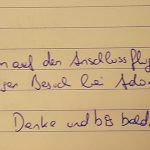 auf den Anschlussflu
Besuch bei Ado
Danke und bis bald